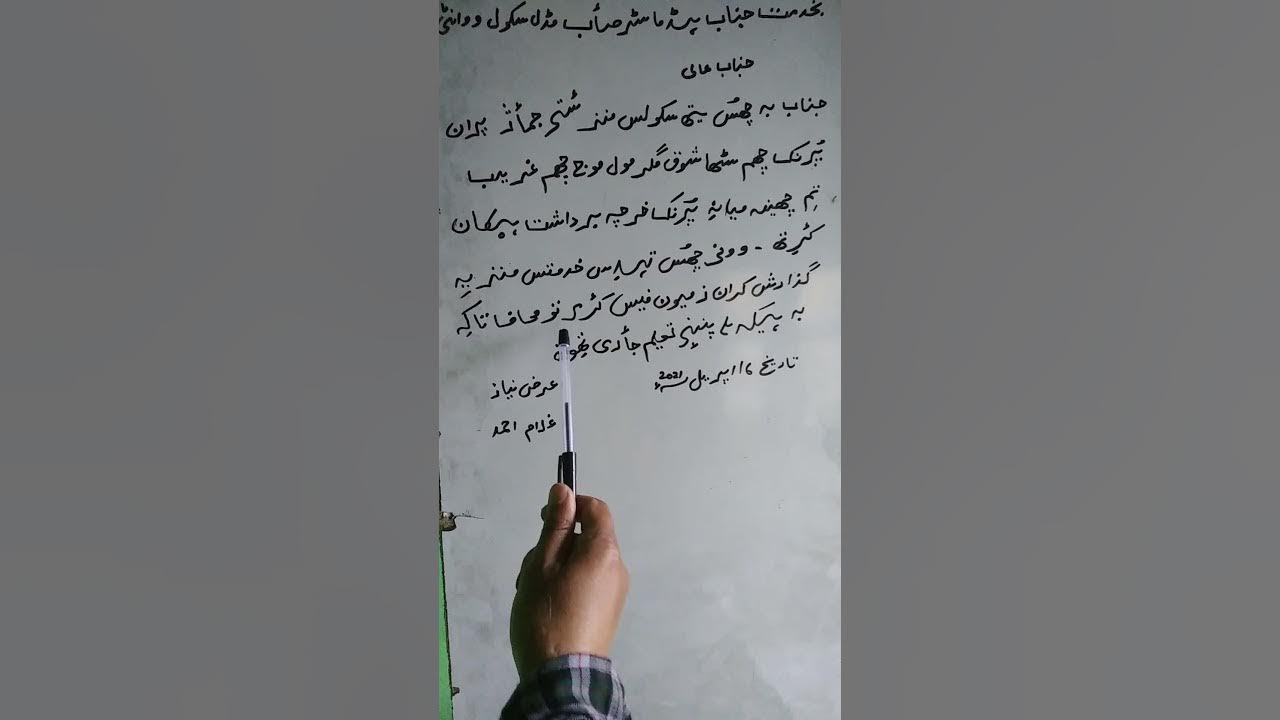 بخدمت جناب ہیڈ ماسٹر صأب مڈل سکول
جناب عالی
جناب بہ چھُس یتھ سکولس منز شتمہِ جمأژ پران
پَرنک چھم سٹھا شوق مگر مول موج چھم غریب
تِم چھِنہ میانہِ پَرنک خرچہ برداشت ہیکان
کٔرتھ ۔ وونی چھُس تہس خدمتس منز یہِ
گذارش کران ز میون فیس کٔرِتو معاف تاکہِ
بہ ہیکہ پننِہ تعلیم جأری
تاریخ ١٦ اپریل 2021ء
عرضی نیاز
غلام احمد